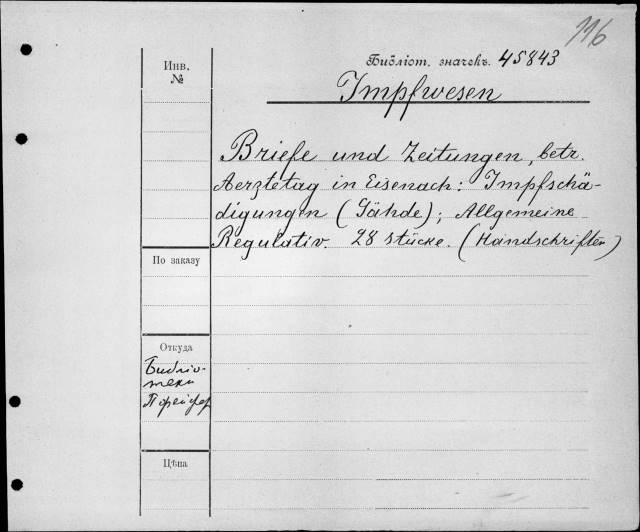 116
Инв.
№
Библіот. значекъ. 45843
Impfwesen
Briefe und Zeitungen, betr.
Aerztetag in Eisenach: Impfschä-
digungen (Gähde); Allgemeine
Regulativ. 28 stücke. (Handschriften)
По заказу
Откуда
Библіо-
теки
Пфейфер
Цѣна